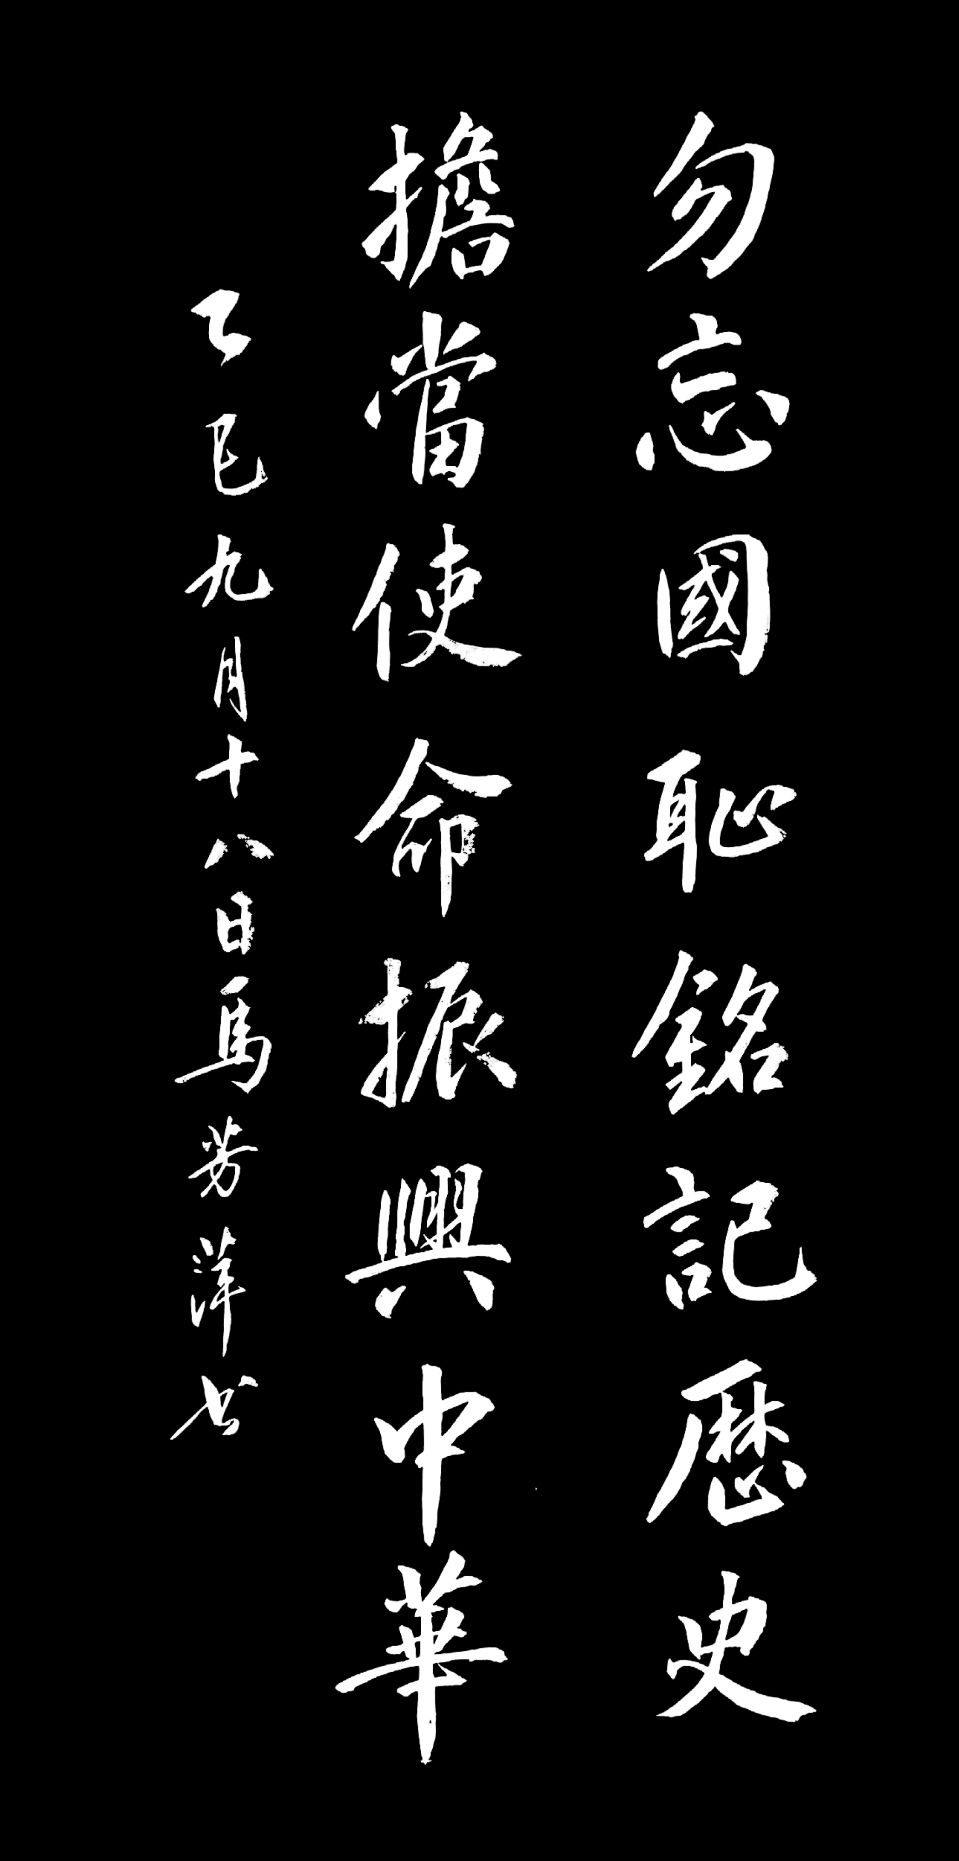 勿忘國恥銘記歷史
擔當使命振興中華
乙巳九月十八日馬芳萍书